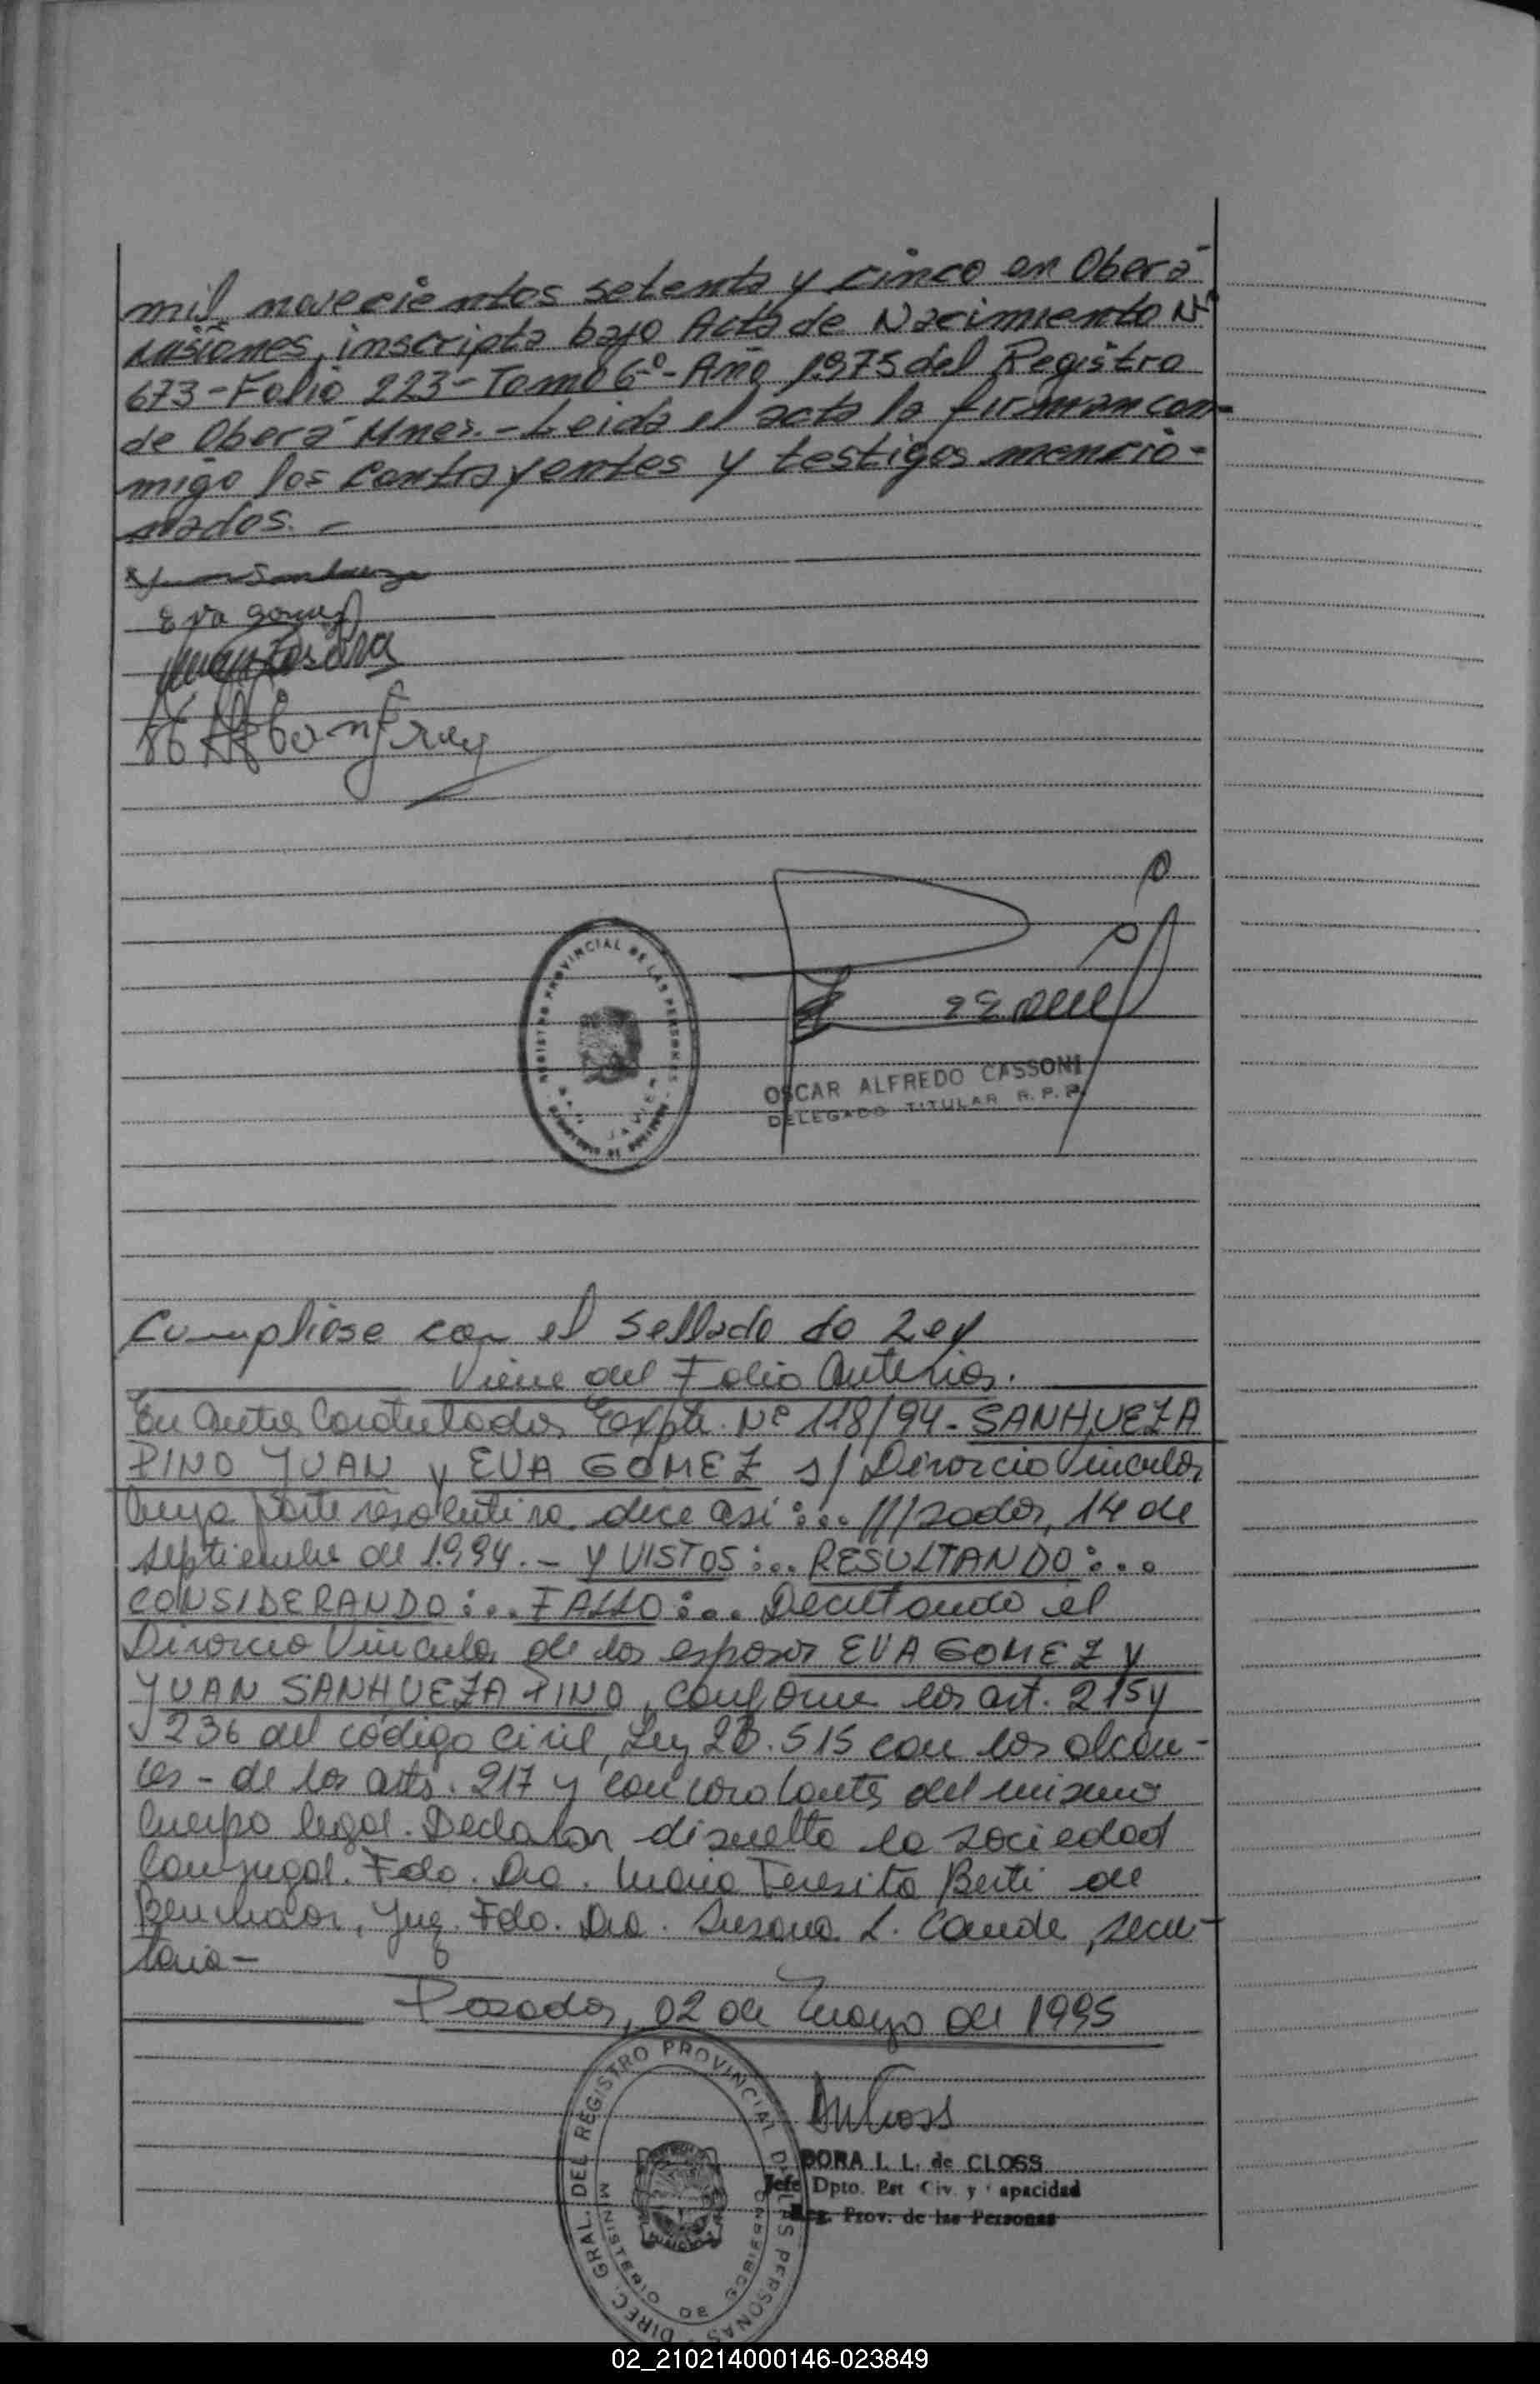 mil novecientos setenta y cinco en Oberá
Misiones, inscripta bajo Acta de Nacimiento Nº
673-Folio 223-Tomo 6º-Año 1975 del Registro
de Oberá Mnes.-Leida el acta la firman con-
migo los contrayentes y testigos mencio-
nados.-
Eva Gomez
OSCAR ALFREDO CASSONI
DELEGADO TITULAR R.P.P.
REGISTRO PROVINCIAL DE LAS PERSONAS
Cumpliose con el Sellado de Ley
Viene del Folio Anterior.
En Autos Caratulados Expte. Nº 118/94-SANHUEZA
PINO JUAN y EVA GOMEZ s/ Divorcio Vincular
Cuya parte resolutiva dice asi:... ///sadas, 14 de
septiembre de 1.994.- Y VISTOS:... RESULTANDO:...
CONSIDERANDO:... FALLO:... Decretando el
Divorcio Vincular de los esposos EVA GOMEZ y
JUAN SANHUEZA PINO, conforme los art. 215 y
236 del código civil, Ley 23.515 con los alcan-
ces - de los arts. 217 y concordantes del mismo
Cuerpo legal. Declarar disuelta la sociedad
Conyugal. Fdo. Dra. Maria Teresita Berti de
Juez. Fdo. Dra. Susana L. Conde, secre-
taria-
Posadas, 02 de Mayo de 1995
DORA I. L. de CLOSS
Jefe Dpto. Est. Civ. y Capacidad
Reg. Prov. de las Personas
DIREC. GRAL. DEL REGISTRO PROVINCIAL DE LAS PERSONAS
MINISTERIO DE GOBIERNO
02_210214000146-023849